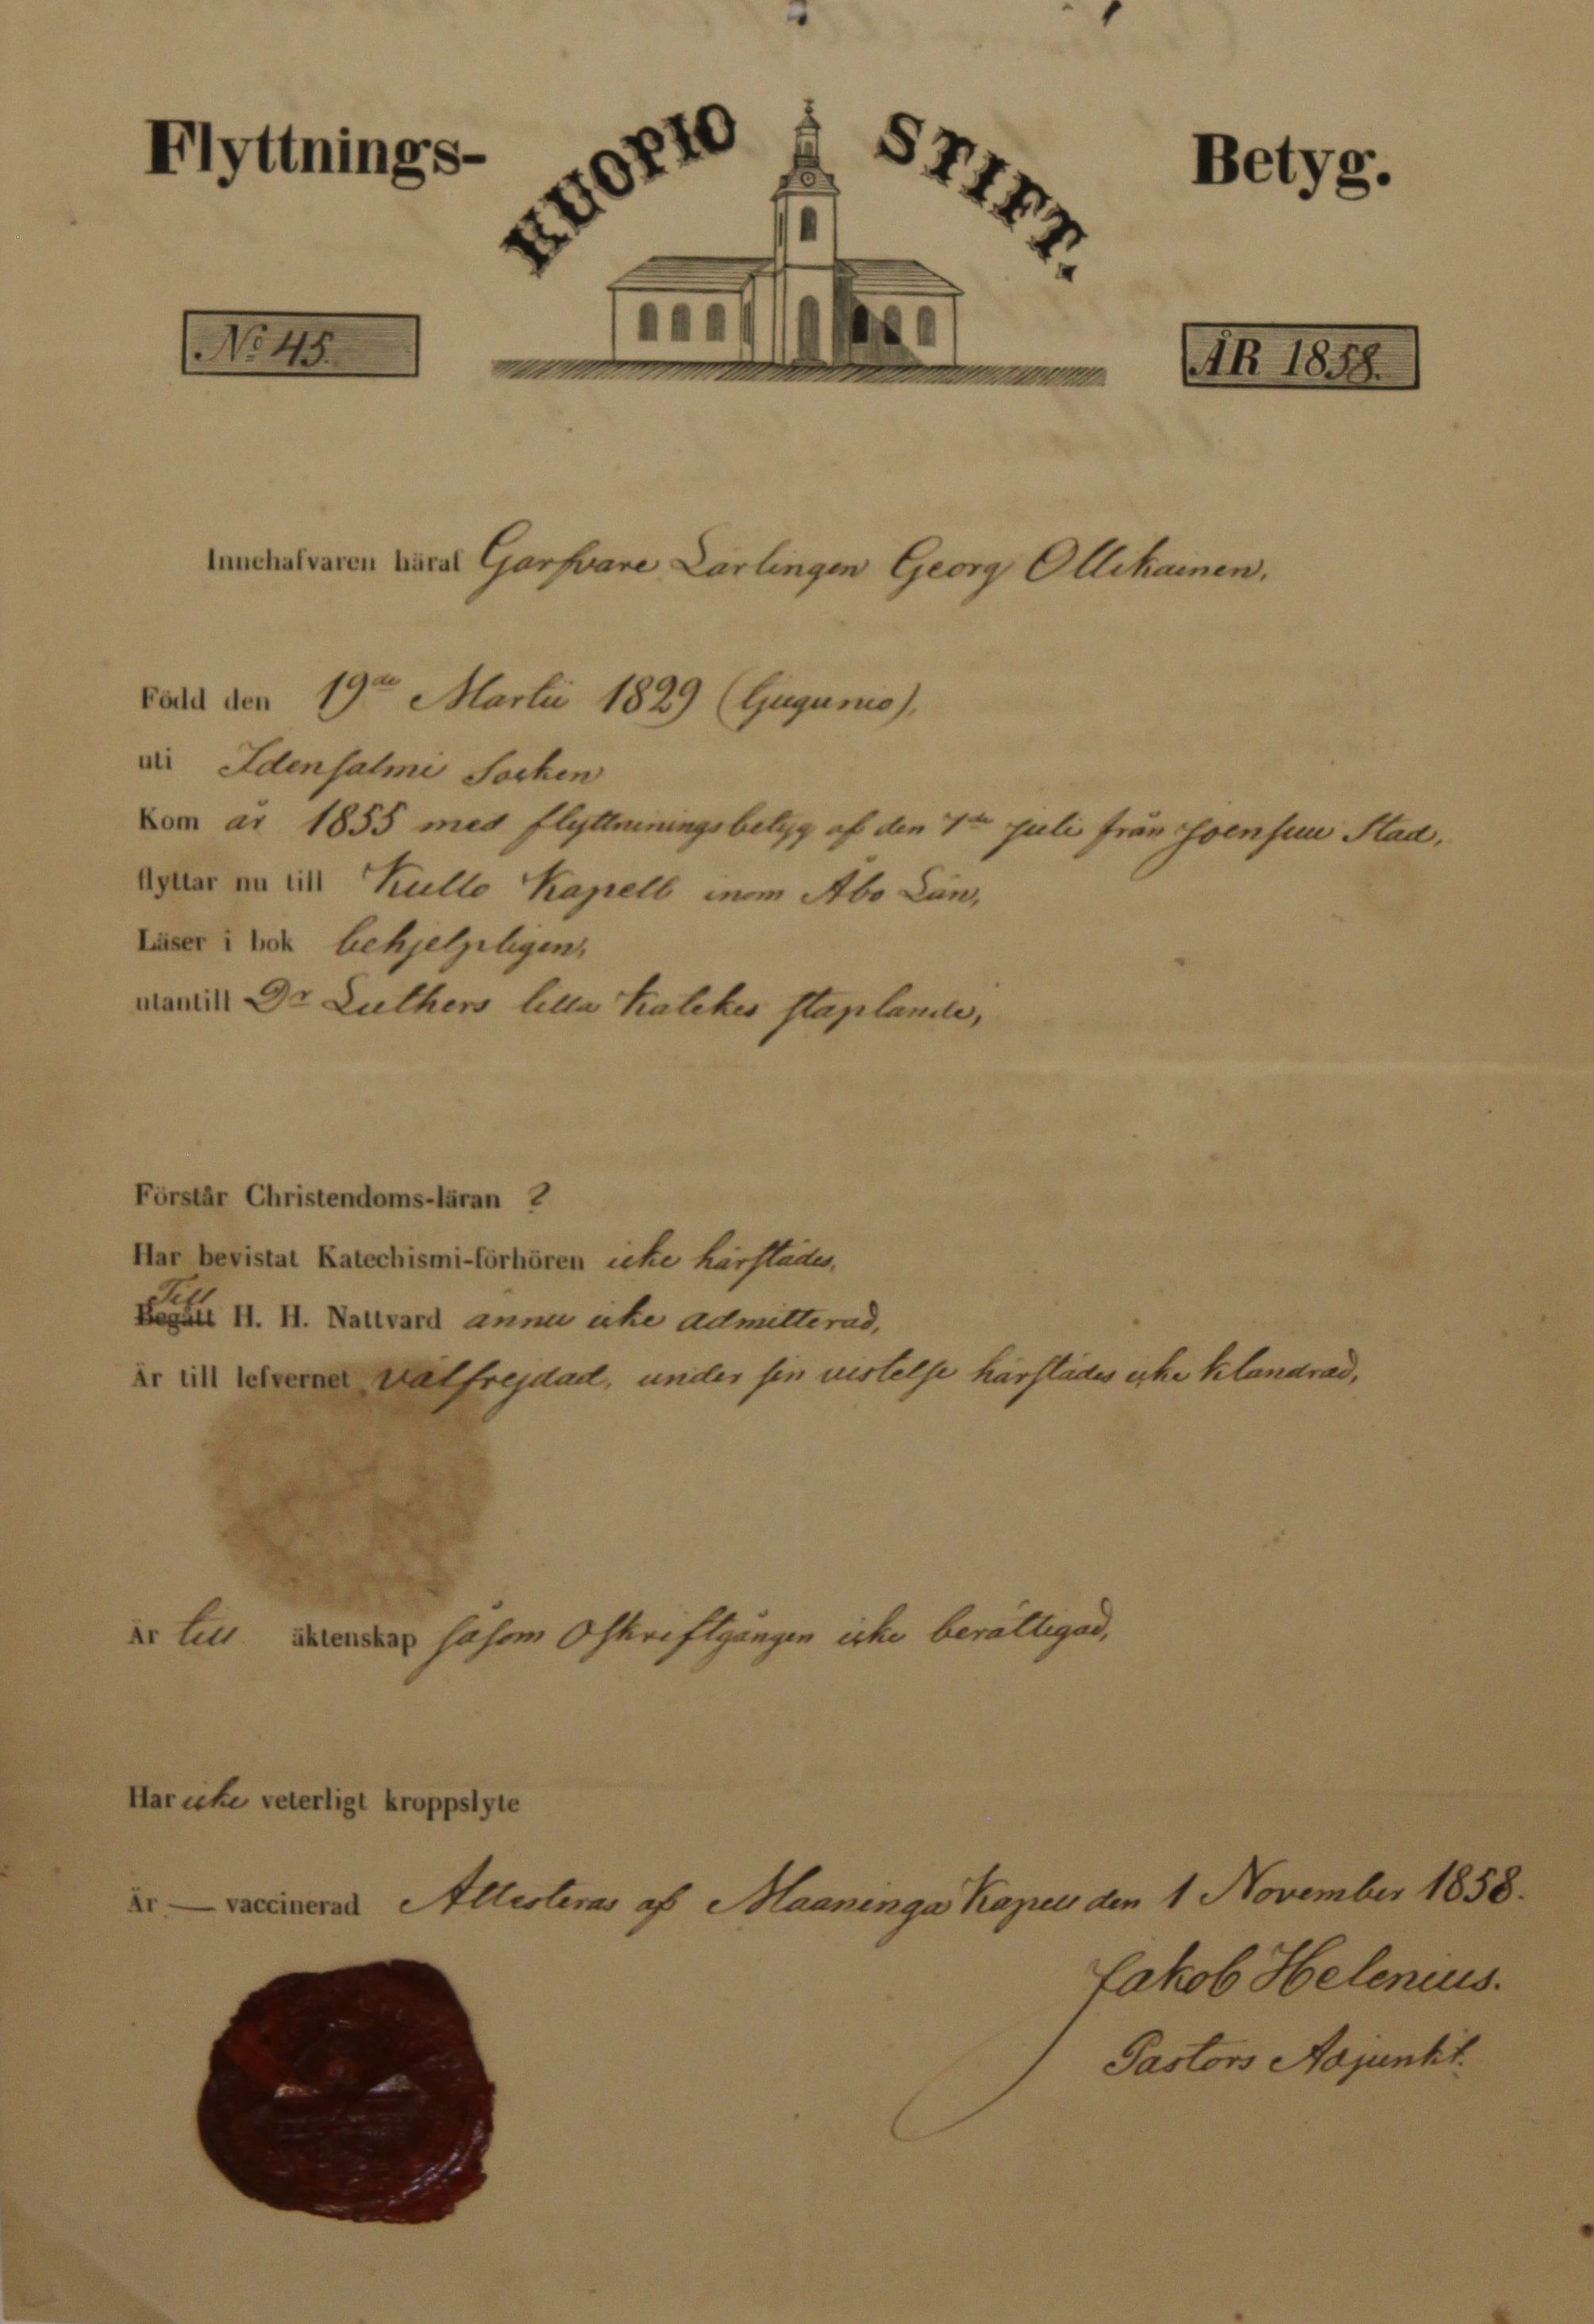 Flyttnings- KUOPIO STIFT. Betyg.
No 45. ÅR 1858.
Innehafvaren häraf Garfvare Lärlingen Georg Ollikainen,
Född den 19de Martii 1829
uti Idensalmi Socken
Kom år 1855 med flyttniningsbetyg af den 7de Juli från Joensuu Stad,
flyttar nu till Kullo Kapell inom Åbo Län,
Läser i bok behjelpligen,
utantill Dr Luthers lilla Katekes staplande,
Förstår Christendoms-läran ?
Har bevistat Katechismi-förhören icke härstädes,
Till
Begått H. H. Nattvard ännu icke admitterad,
Är till lefvernet välfrejdad, under sin vistelse härstädes icke klandrad,
Är till äktenskap såsom Oskriftgången icke berättigad,
Har icke veterligt kroppslyte
Är — vaccinerad Attesteras af Maaninga Kapell den 1 November 1858.
Jakob Helenius.
Pastors Adjunkt.